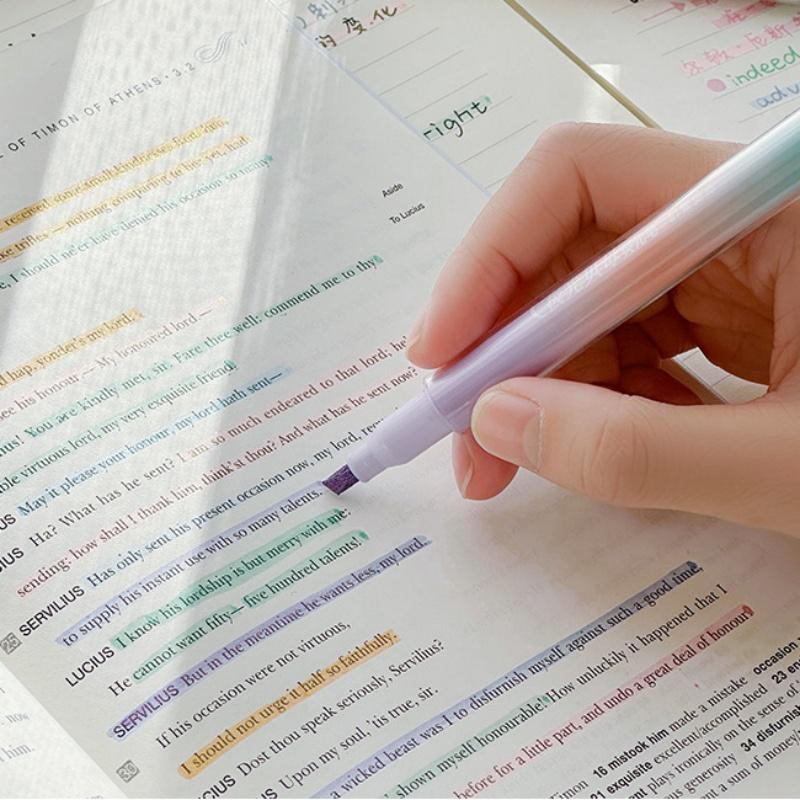 的变化
right
indeed
OF TIMON OF ATHENS · 3.2
received some small kindnesses from him,
trifles — nothing comparing to his; yet, had
, I should ne'er have denied his occasion so many
Aside
To Lucius
hap, yonder's my lord.
see his honour. — My honoured lord —
You are kindly met, sir. Fare thee well; commend me to thy
virtuous lord, my very exquisite friend.
May it please your honour, my lord hath sent—
Ha? What has he sent? I am so much endeared to that lord; he
sending: how shall I thank him, think'st thou? And what has he sent now?
SERVILIUS Has only sent his present occasion now, my lord,
25 to supply his instant use with so many talents.
LUCIUS I know his lordship is but merry with me:
He cannot want fifty— five hundred talents!
SERVILIUS But in the meantime he wants less, my lord.
If his occasion were not virtuous,
30 I should not urge it half so faithfully.
CIUS Dost thou speak seriously, Servilius?
US Upon my soul, 'tis true, sir.
a wicked beast was I to disfurnish myself against such a good time,
shown myself honourable! How unluckily it happened that I
before for a little part, and undo a great deal of honour!
Timon 16 mistook him made a mistake occasion
21 exquisite excellent/accomplished 23
plays ironically on the sense of
generosity 34 disfurnish
a sum of money
now
him.